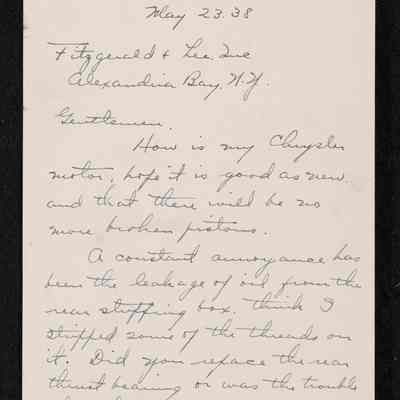 May 23.38
Fitzgerald & Lee. Inc
Alexandria Bay. N.Y.
Gentlemen.
How is my Chrysler
motor, hope it is good as new
and that there will be no
more broken pistons.
A constant annoyance has
been the leakage of oil from the
rear stuffing box. think I
stripped some of the threads on
it. Did you replace the rear
thrust bearing or was the trouble